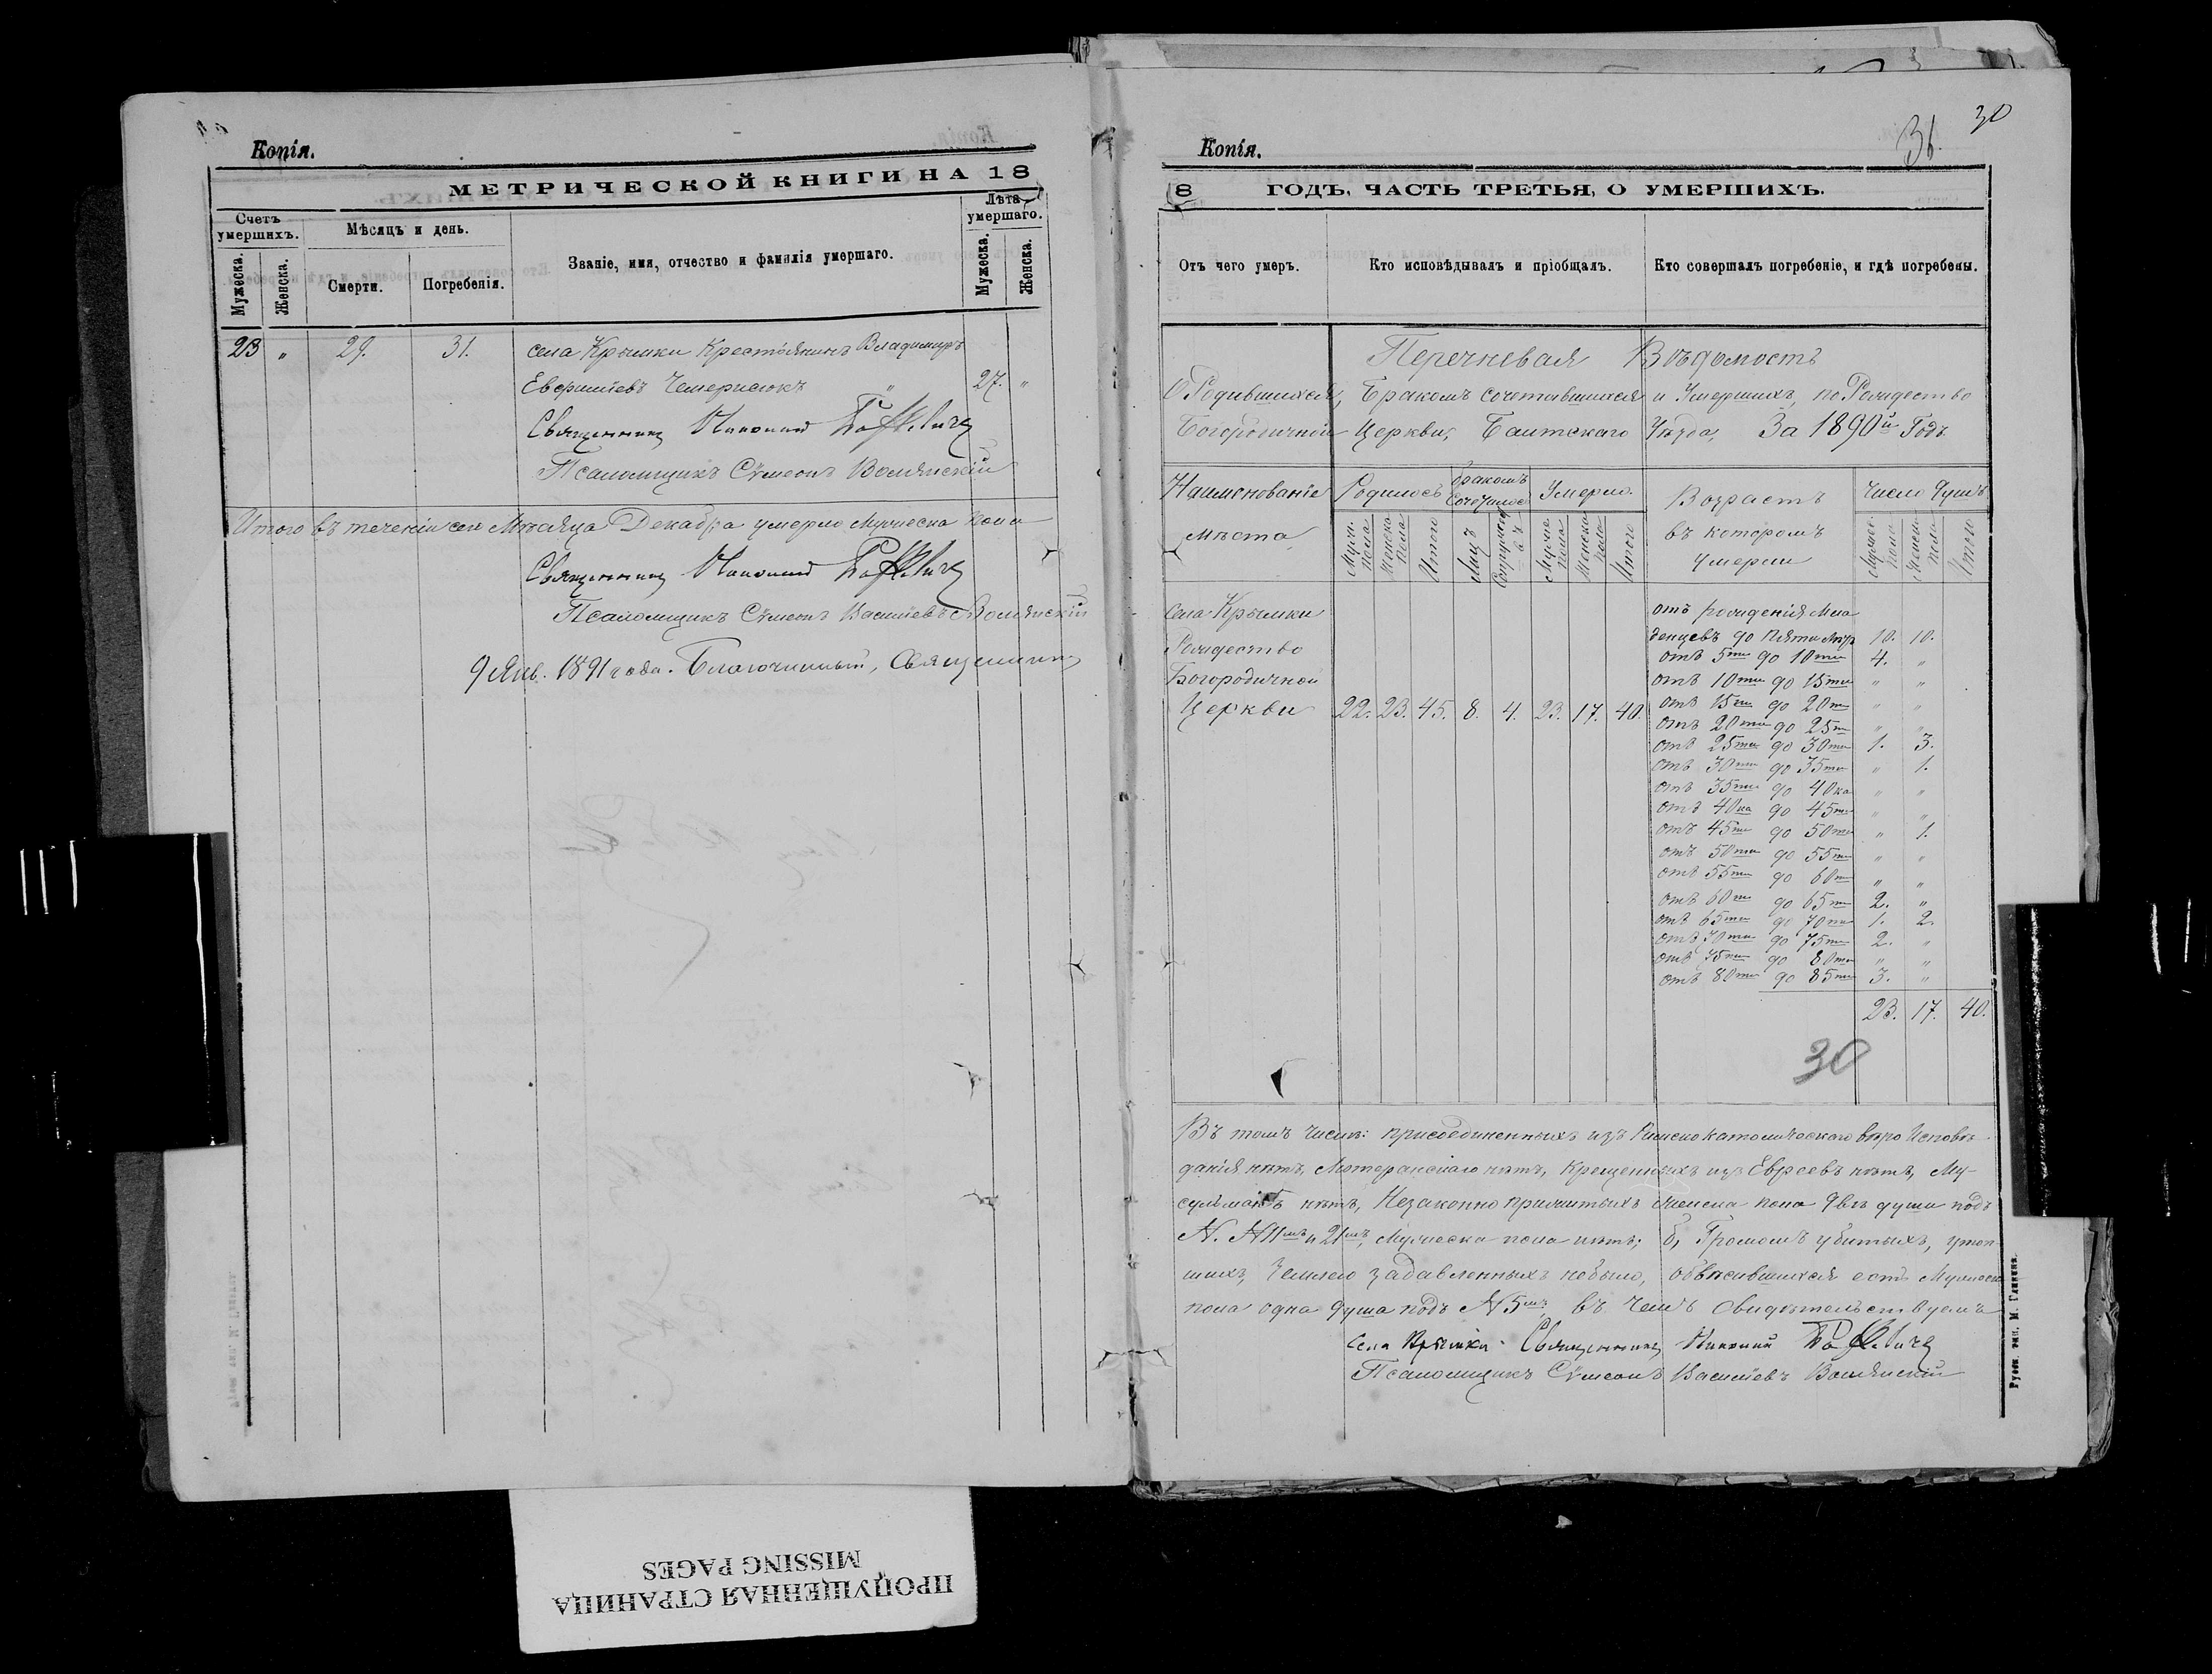 Копія.
МЕТРИЧЕСКОЙ КНИГИ НА 18
Счетъ умершихъ.
Мѣсяцъ и день.
Званіе, имя, отчество и фамилія умершаго.
Лѣта умершаго.
Мужеска.
Женска.
Смерти.
Погребенія.
Мужеска.
Женска.
23 " 29. 31. села Крымки Крестьянинъ Владимиръ
Евфиміевъ Чемерисюкъ " 27. "
Священникъ
Псаломщикъ Сѵмеонъ Волянскій
Итого въ теченіи сего Мѣсяца Декабра умерло Мужеска пола
Священникъ
Псаломщикъ Сѵмеонъ Василіевъ Волянскій
9 Янв. 1891 года. Благочинный, Священникъ
Копія.
31. 30
8 ГОДЪ, ЧАСТЬ ТРЕТЬЯ, О УМЕРШИХЪ.
Отъ чего умеръ.
Кто исповѣдывалъ и пріобщалъ.
Кто совершалъ погребеніе, и гдѣ погребены.
Перечневая Вѣдомость
О Родившихся, Бракомъ сочетавшихся и Умершихъ, по Рождество
Богородичной Церкви, Балтскаго Уѣзда, За 1890й Годъ.
Наименованіе мѣста
Родилось
Бракомъ Сочеталось
Умерло.
Возрастъ въ которомъ Умерли
Число Душъ
Муж. пола
Женска пола
Итого
Лицъ
Супружествъ
Муже пола
Женска пола
Итого
Мужес. пола
Женск. пола
Итого
села Крымки
Рождество
Богородичной
Церкви 22. 23. 45. 8. 4. 23. 17. 40.
отъ рожденія Мла
денцевъ до пяти лѣтъ 10. 10.
отъ 5ти до 10ти 4. "
отъ 10ти до 15ти " "
отъ 15ти до 20ти " "
отъ 20ти до 25ти " "
отъ 25ти до 30ти 1. 3.
отъ 30ти до 35ти " 1.
отъ 35ти до 40ка " "
отъ 40ка до 45ти " "
отъ 45ти до 50ти " 1.
отъ 50ти до 55ти " "
отъ 55ти до 60ти " "
отъ 60ти до 65ти 2. "
отъ 65ти до 70ти 1. 2.
отъ 70ти до 75ти 2. "
отъ 75ти до 80ти " "
отъ 80ти до 85ти 3. "
23. 17. 40.
30
Въ томъ числѣ: присоединенныхъ изъ Римско католическаго вѣро Исповѣ
данія нѣтъ, Лютеранскаго нѣтъ, Крещенныхъ изъ Евреевъ нѣтъ, Му-
сульманъ нѣтъ, Незаконно прижитыхъ женска пола двѣ души подъ
N. N 11мъ и 21мъ, Мужеска пола нѣтъ; б, Громомъ убитыхъ, утоп
шихъ, Землею задавленныхъ небыло, обвѣсившихся есть Мужеск
пола одна душа подъ N 5мъ, въ чемъ свидѣтельствуемъ
села Крымки Священникъ
Псаломщикъ Сѵмеонъ Василіевъ Волянскій
Русск. тип. М. Гликина.
ПРОПУЩЕННАЯ СТРАНИЦА
MISSING PAGES